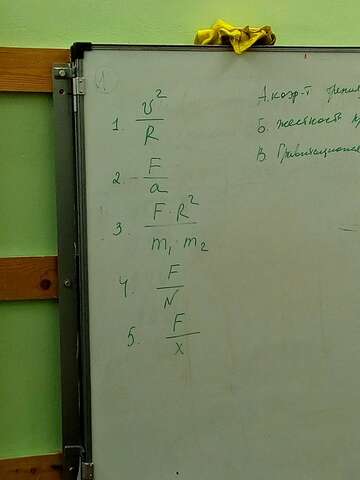 1
1. v²/R
2. F/a
3. F·R²/m₁·m₂
4. F/N
5. F/x
А. коэф-т трения
Б. жесткость
В. Гравитационная